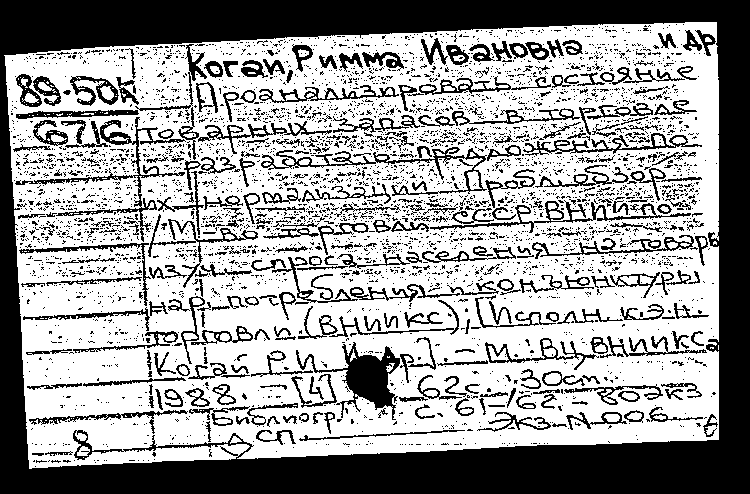 Когай, Римма Ивановна и др.
89-50к
6716
Проанализировать состояние
товарных запасов в торговле
и разработать предложения по
их нормализации: Пробл. обзор
/М-во торговли СССР, ВНИИ по
изуч. спроса населения на товары
нар. потребления и конъюнктуры
торговли (ВНИИКС); [Исполн. к.э.н.
Когай Р.И. И др.]. – М.: ВЦ ВНИИКСа
1988. – [4] 62с. : 30см.
Библиогр.: с. 61-62. – 80экз.
сп. Экз. N 006.
8